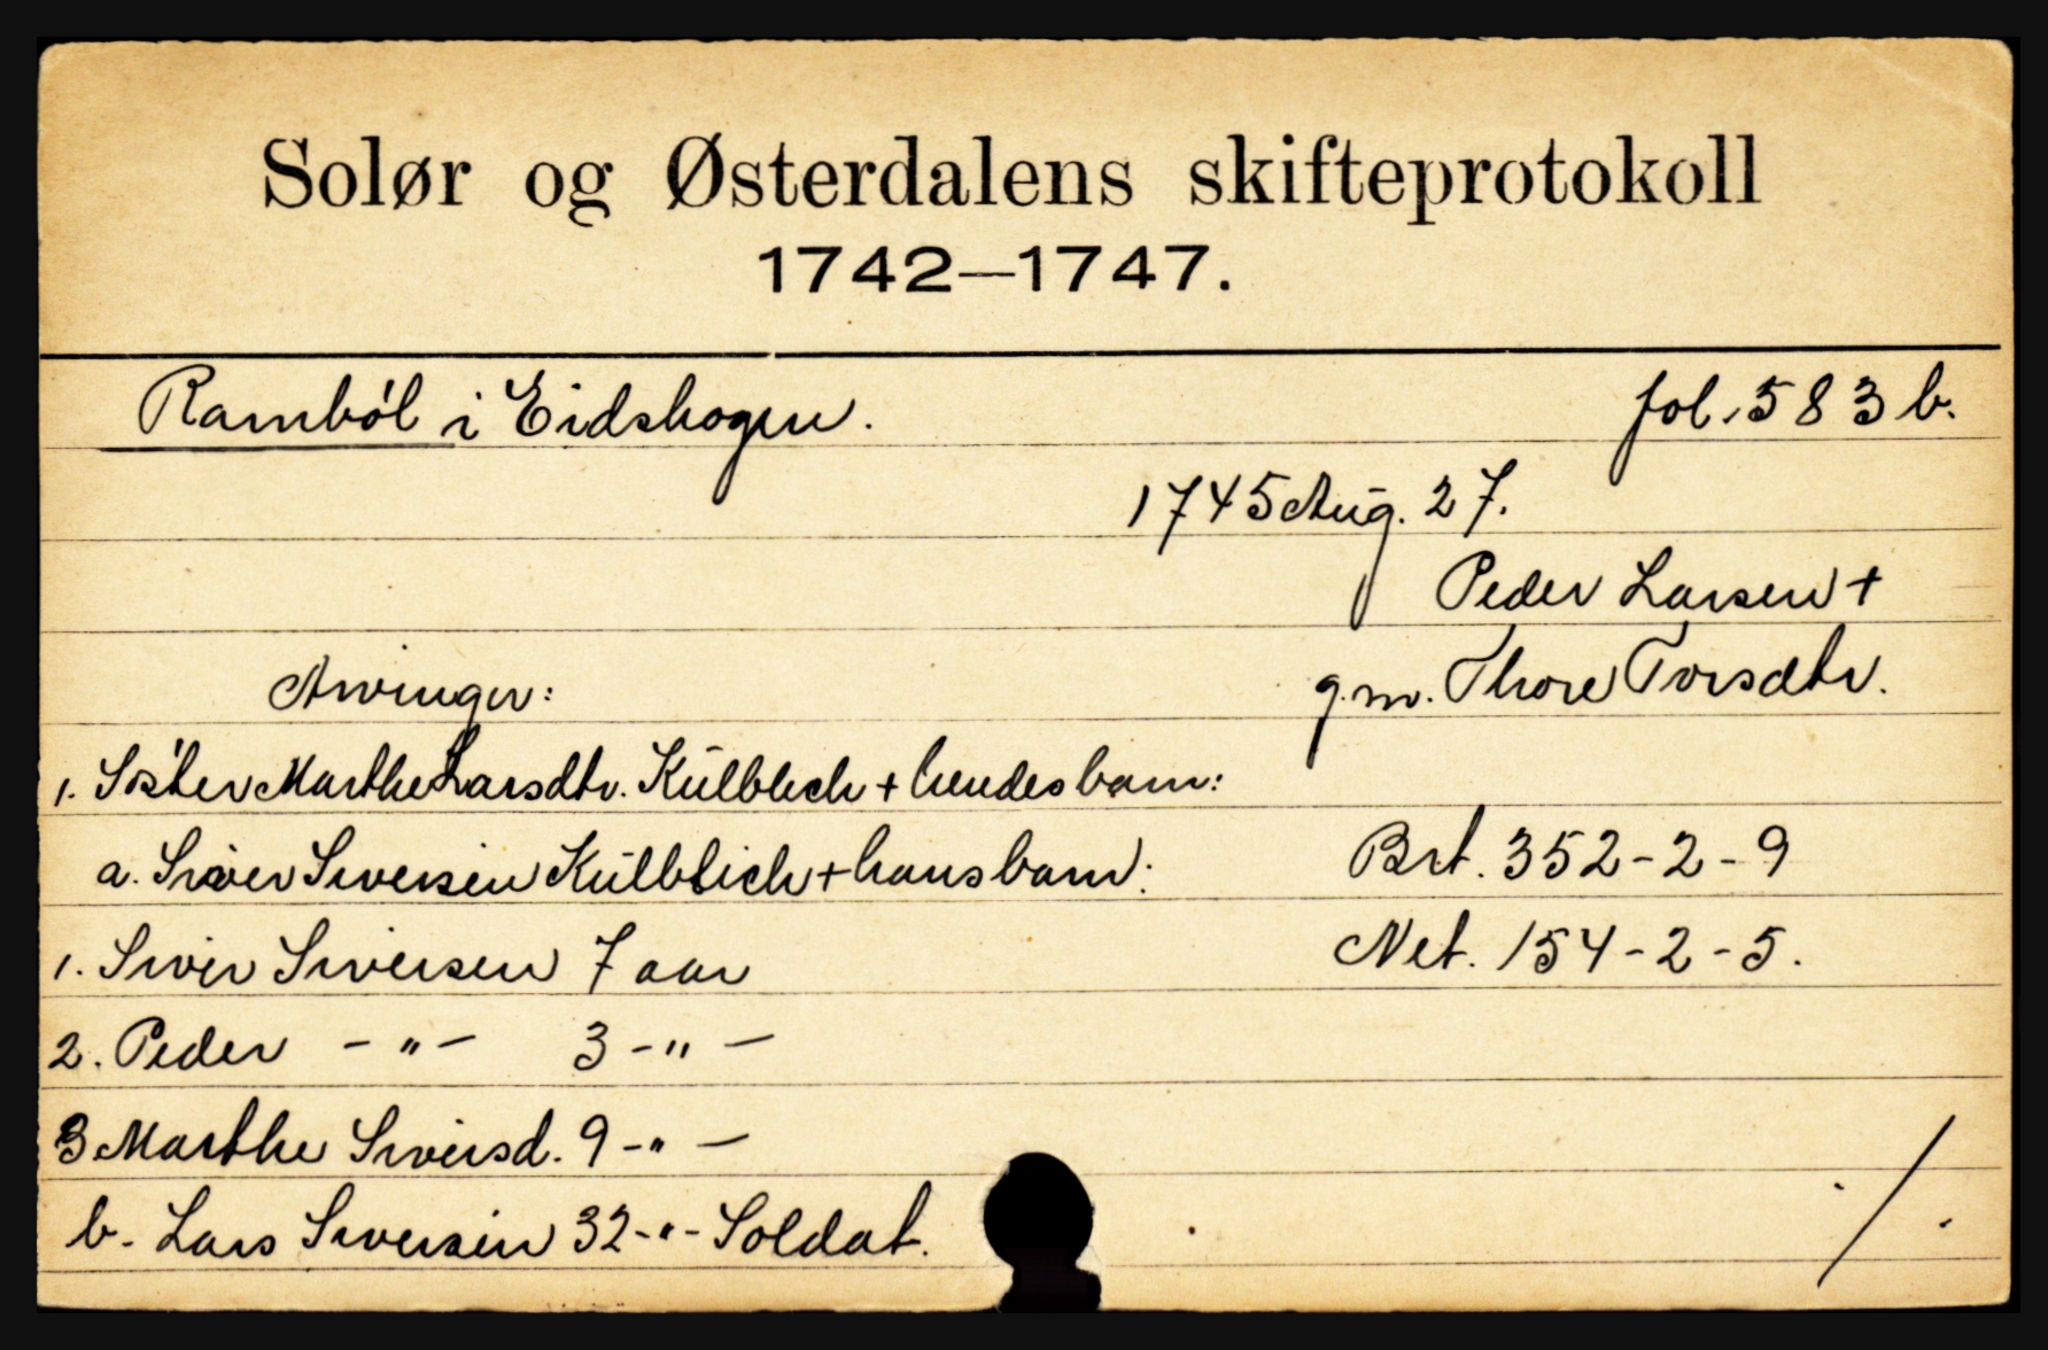 Solør og Østerdalens skifteprotokoll
1742—1747.
Ramból i Eidskogen. fol. 583 b.
1745 Aug. 27.
Peder Larsen +
Arvinger: g.m. Thore Torsdtr.
1. Sóster Marthe Larsdtr. Külblich + hendes barn:
a. Siver Siversen Külblich + hans barn: Brt. 352-2-9
1. Siver Siversen 7 aar Net. 154-2-5.
2. Peder -"- 3 -"-
3 Marthe Siversd. 9 -"-
b. Lars Siversen 32 -"- Soldat. ./.